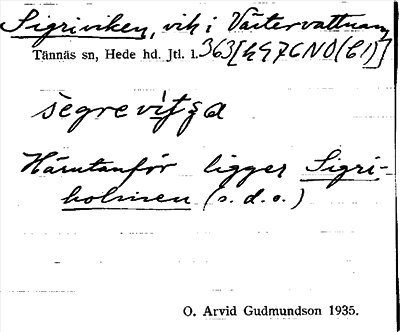 Sigriviken, vik i Västervattnam
Tännäs sn, Hede hd. Jtl. 1. 363[h97CNO(C1)]
sègrevit̨ša
Härutanför ligger Sigri-
holmen (s.d.o.)
O. Arvid Gudmundson 1935.